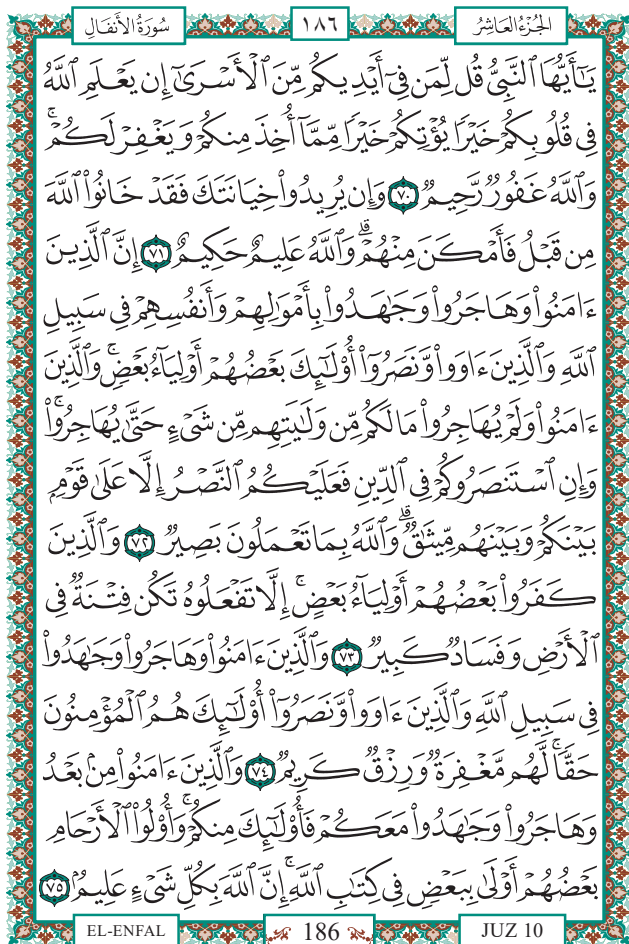 سُورَةُ الأَنفَالِ ١٨٦ الجُزْءُ العَاشِرُ
يَـٰٓأَيُّهَا ٱلنَّبِىُّ قُل لِّمَن فِىٓ أَيْدِيكُم مِّنَ ٱلْأَسْرَىٰٓ إِن يَعْلَمِ ٱللَّهُ
فِى قُلُوبِكُمْ خَيْرًا يُؤْتِكُمْ خَيْرًا مِّمَّآ أُخِذَ مِنكُمْ وَيَغْفِرْ لَكُمْ ۚ
وَٱللَّهُ غَفُورٌ رَّحِيمٌ ٧٠ وَإِن يُرِيدُوا۟ خِيَانَتَكَ فَقَدْ خَانُوا۟ ٱللَّهَ
مِن قَبْلُ فَأَمْكَنَ مِنْهُمْ ۗ وَٱللَّهُ عَلِيمٌ حَكِيمٌ ٧١ إِنَّ ٱلَّذِينَ
ءَامَنُوا۟ وَهَاجَرُوا۟ وَجَـٰهَدُوا۟ بِأَمْوَٰلِهِمْ وَأَنفُسِهِمْ فِى سَبِيلِ
ٱللَّهِ وَٱلَّذِينَ ءَاوَوا۟ وَّنَصَرُوٓا۟ أُو۟لَـٰٓئِكَ بَعْضُهُمْ أَوْلِيَآءُ بَعْضٍ ۚ وَٱلَّذِينَ
ءَامَنُوا۟ وَلَمْ يُهَاجِرُوا۟ مَا لَكُم مِّن وَلَـٰيَتِهِم مِّن شَىْءٍ حَتَّىٰ يُهَاجِرُوا۟ ۚ
وَإِنِ ٱسْتَنصَرُوكُمْ فِى ٱلدِّينِ فَعَلَيْكُمُ ٱلنَّصْرُ إِلَّا عَلَىٰ قَوْمٍۭ
بَيْنَكُمْ وَبَيْنَهُم مِّيثَـٰقٌ ۗ وَٱللَّهُ بِمَا تَعْمَلُونَ بَصِيرٌ ٧٢ وَٱلَّذِينَ
كَفَرُوا۟ بَعْضُهُمْ أَوْلِيَآءُ بَعْضٍ ۚ إِلَّا تَفْعَلُوهُ تَكُن فِتْنَةٌ فِى
ٱلْأَرْضِ وَفَسَادٌ كَبِيرٌ ٧٣ وَٱلَّذِينَ ءَامَنُوا۟ وَهَاجَرُوا۟ وَجَـٰهَدُوا۟
فِى سَبِيلِ ٱللَّهِ وَٱلَّذِينَ ءَاوَوا۟ وَّنَصَرُوٓا۟ أُو۟لَـٰٓئِكَ هُمُ ٱلْمُؤْمِنُونَ
حَقًّا ۚ لَّهُم مَّغْفِرَةٌ وَرِزْقٌ كَرِيمٌ ٧٤ وَٱلَّذِينَ ءَامَنُوا۟ مِنۢ بَعْدُ
وَهَاجَرُوا۟ وَجَـٰهَدُوا۟ مَعَكُمْ فَأُو۟لَـٰٓئِكَ مِنكُمْ ۚ وَأُو۟لُوا۟ ٱلْأَرْحَامِ
بَعْضُهُمْ أَوْلَىٰ بِبَعْضٍ فِى كِتَـٰبِ ٱللَّهِ ۗ إِنَّ ٱللَّهَ بِكُلِّ شَىْءٍ عَلِيمٌۢ ٧٥
EL-ENFAL 186 JUZ 10